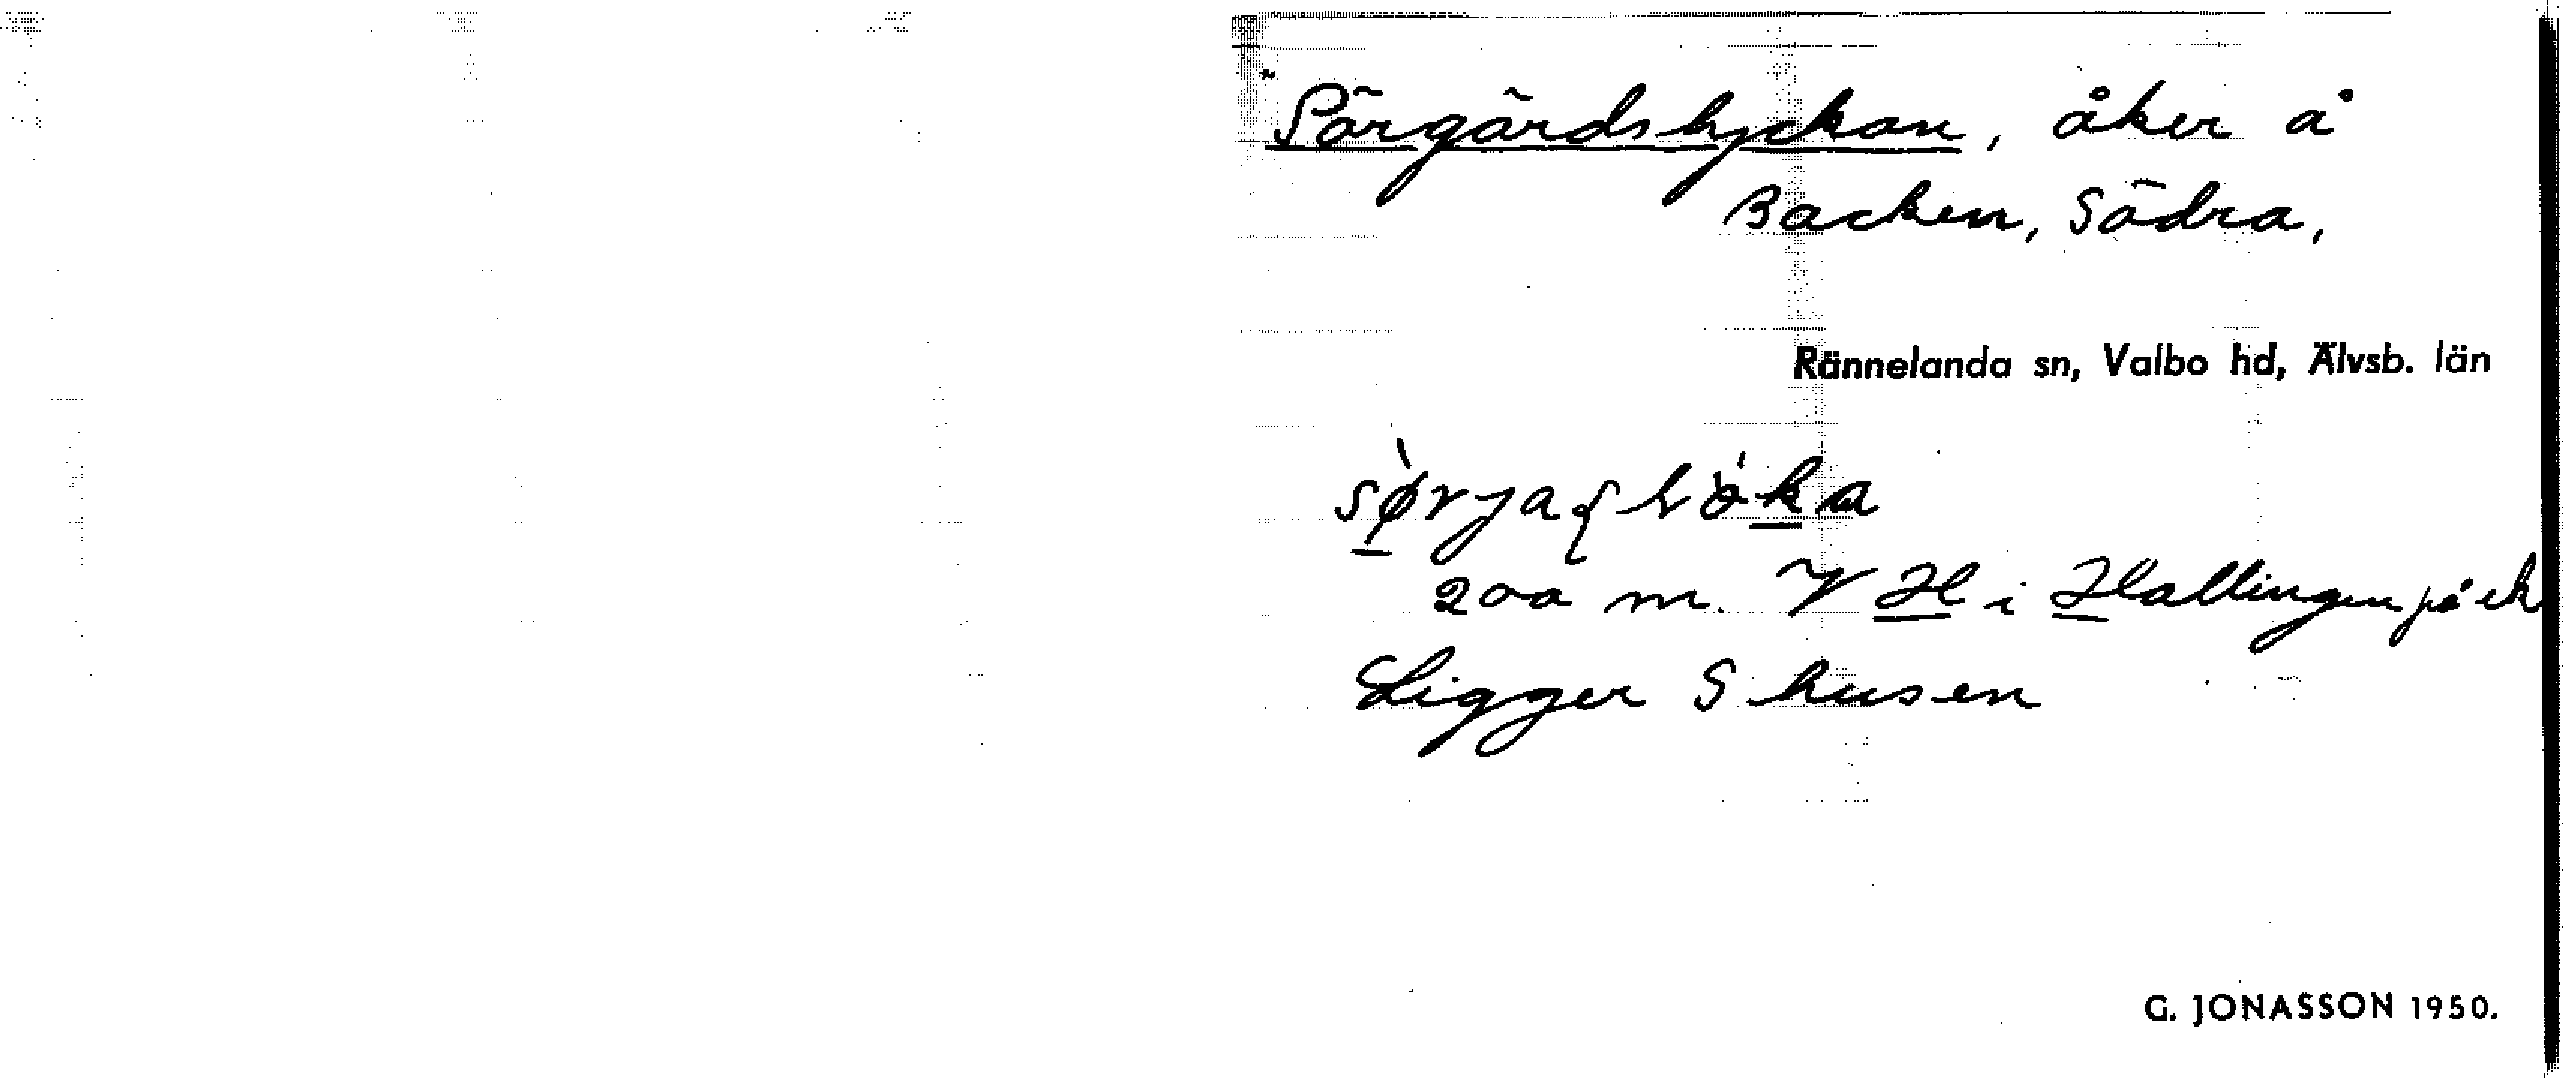 Sörgärdslyckan, åker å
Backen, Södra,
Rännelanda sn, Valbo hd, Älvsb. län
200 m. V H i Hallingen på ek
Ligger S husen
G. JONASSON 1950.